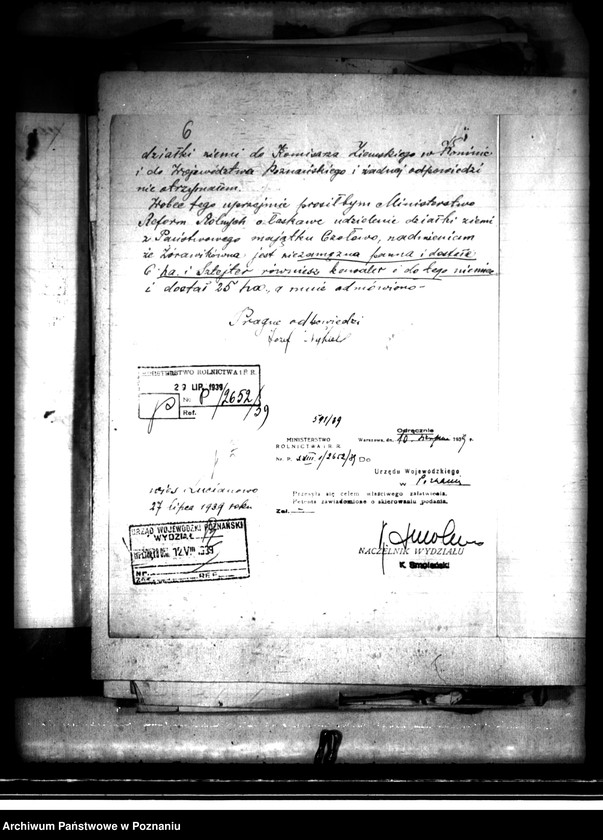 6
działki ziemi do Komisarza Ziemskiego w Koninie
i do Województwa Poznańskiego i żadnej odpowiedzi
nie otrzymałem.
Wobec tego uprzejmie prosiłbym Ministerstwo
Reform Rolnych o łaskawe udzielenie działki ziemi
z Państwowego majątku Czołowo, nadmieniam
że Żórawikówna jest niezamężna panna i dostała
6 ha. i Szlejter również kawaler i do tego niemiec
i dostał 25 ha., a mnie odmówiono -
Pragnę odpowiedzi
Józef
MINISTERSTWO ROLNICTWA i R. R.
29 LIP. 1939
No P/2652/39
Ref.
591/39
Odręcznie
MINISTERSTWO
ROLNICTWA i R. R.
Warszawa, dn. 10 sierpnia 1939 r.
Nr. P. 1/2652/39 Do
Urzędu Wojewódzkiego
w Poznaniu
Przesyła się celem właściwego załatwienia.
Petenta zawiadomiono o skierowaniu podania.
Zał. —
wieś Lucianowo
27 lipca 1939 roku
URZĄD WOJEWÓDZKI POZNAŃSKI
WYDZIAŁ
12 VIII 1939
NR.
ZAŁ. REF.
NACZELNIK WYDZIAŁU
K. Smoleński
Archiwum Państwowe w Poznaniu